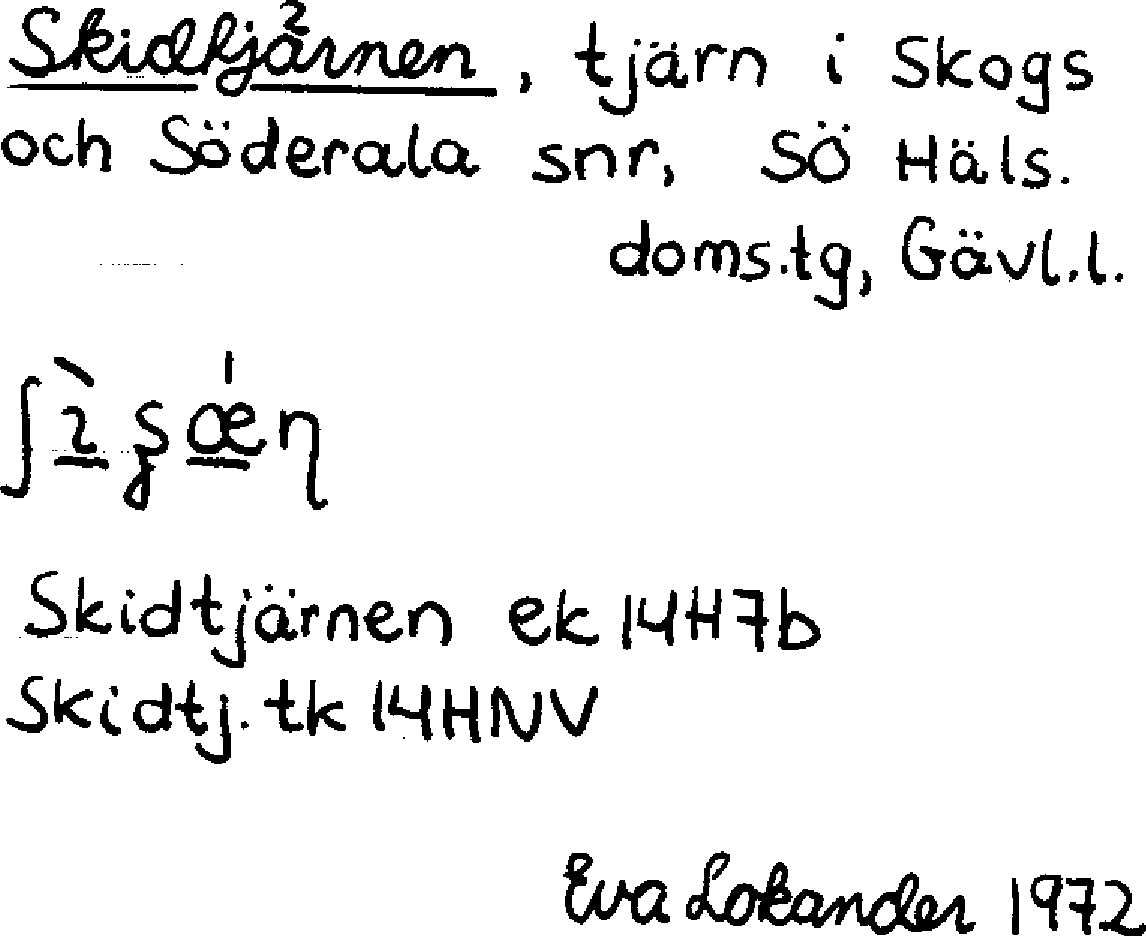 Skidtjärnen, tjärn i Skogs
och Söderala snr, SÖ Häls.
doms.tg, Gävl.l.
Skidtjärnen ek 14H7b
Skidtj. tk 14HNV
Eva Lokander 1972